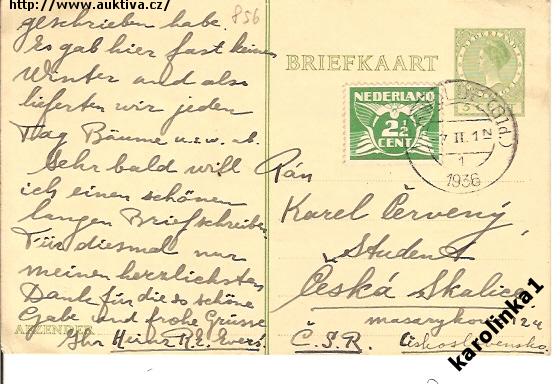 http://www.auktiva.cz/
geschrieben habe.
856
Es gab hier fast keinen
Winter und also
lieferten wir jeden
Tag Bäume u.s.w. ab.
Sehr bald will
ich einen schönen
langen Brief schreiben.
Für diesmal nur
meinen herzlichsten
Dank für die so schöne
Gabe und frohe Grüsse
AFZENDER
Ihr Heinz R.E. Evers
BRIEFKAART
NEDERLAND
NEDERLAND
2½
CENT
7 II. 12
1
1936
Pán
Karel Červený,
Student
Česká Skalice
Masarykova 124
Č.S.R. Československo.
karolinka1